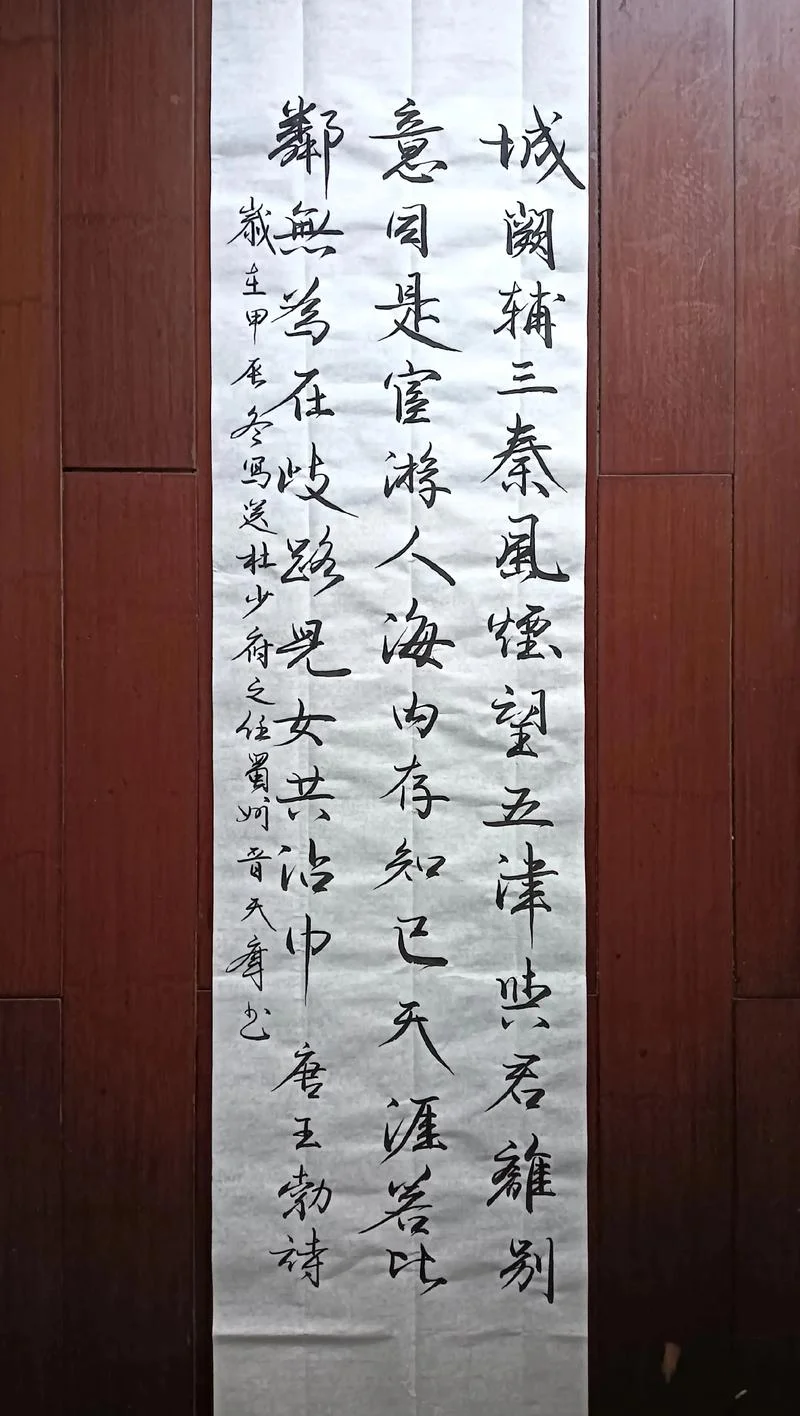 城阙辅三秦風煙望五津與君離别
意同是宦游人海内存知己天涯若比
鄰無為在歧路児女共沾巾 唐王勃詩
歲在甲辰冬写送杜少府之任蜀州 晋天摩书